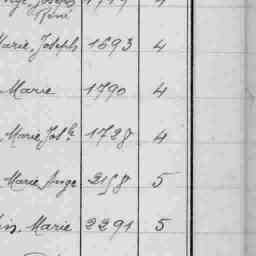 René
Marie, Joseph 1693 4
Marie 1790 4
Marie Jos.h 1728 4
Marie Ange 2158 5
Marie 2291 5